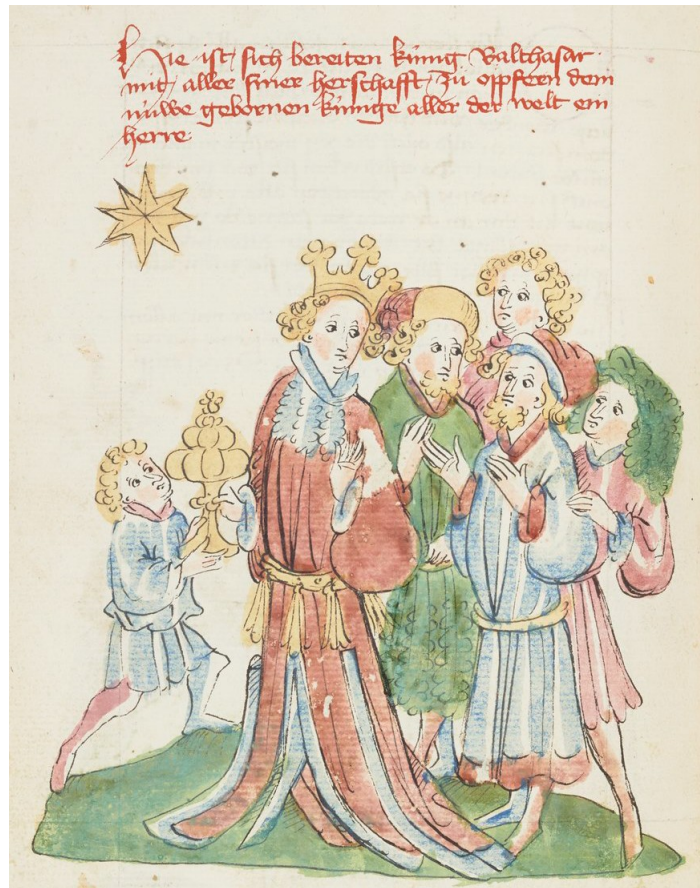 Hie ist sich bereiten künig Balthasar
mit aller siner herschafft zů opffern dem
nüwe gebornen künige aller der welt ein
herre